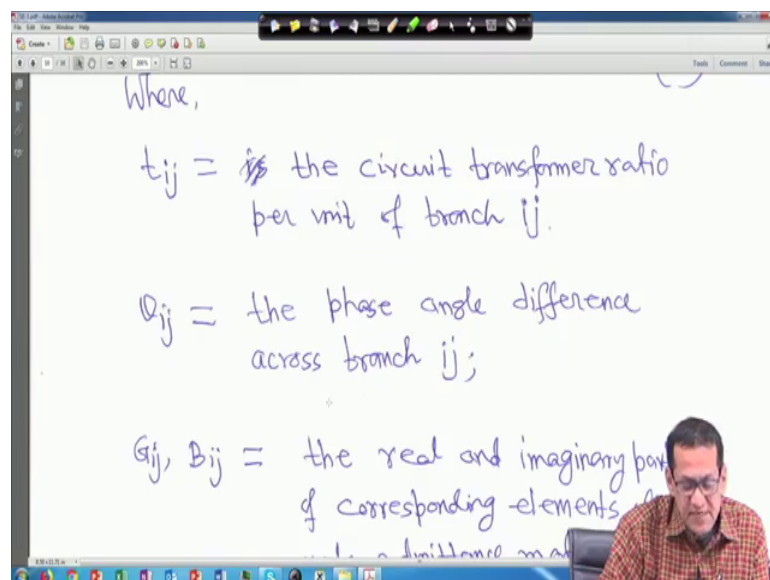 SE-1.pdf - Adobe Acrobat Pro
File Edit View Window Help
Create
Tools Comment
Where,
tij = the circuit transformer ratio
per unit of branch ij.
θij = the phase angle difference
across branch ij;
Gij, Bij = the real and imaginary par
of corresponding elements
admittance ma